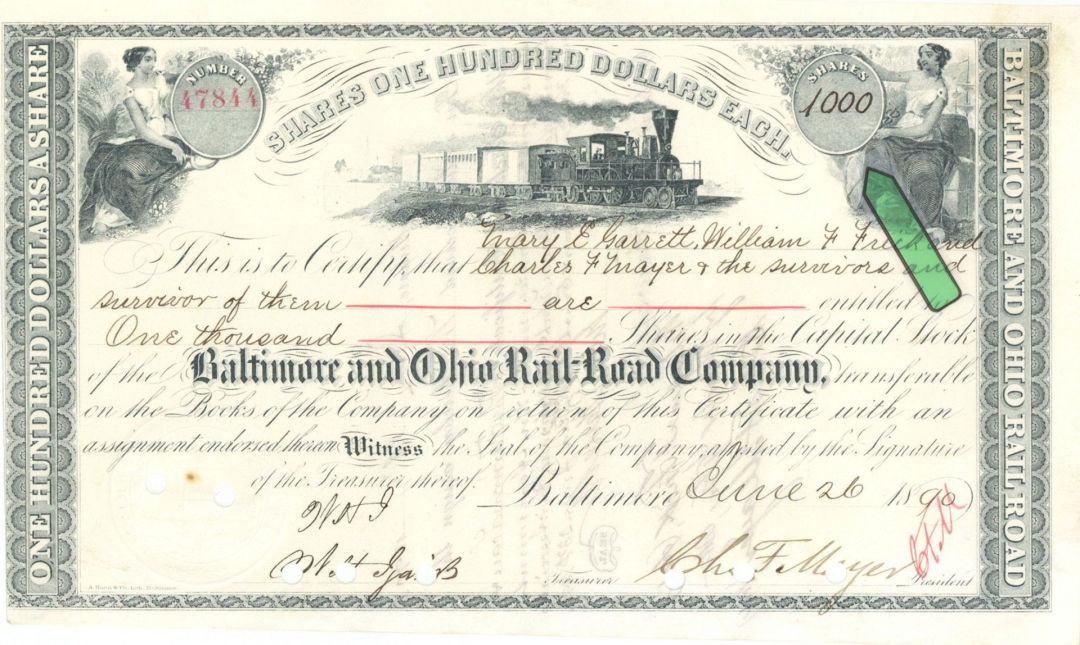 NUMBER
47844
SHARES ONE HUNDRED DOLLARS EACH.
SHARES
1000
ONE HUNDRED DOLLARS A SHARE
BALTIMORE AND OHIO RAIL ROAD
Mary E Garrett, William F Frick and
This is to Certify, that Charles F Mayer & the survivors and
survivor of them are entitled to
One thousand Shares in the Capital Stock
of the Baltimore and Ohio Rail-Road Company, transferable
on the Books of the Company on return of this Certificate with an
assignment endorsed thereon Witness the Seal of the Company, attested by the Signature
of the Treasurer thereof.
Baltimore June 26 1890
Treasurer Chs F. Mayer President